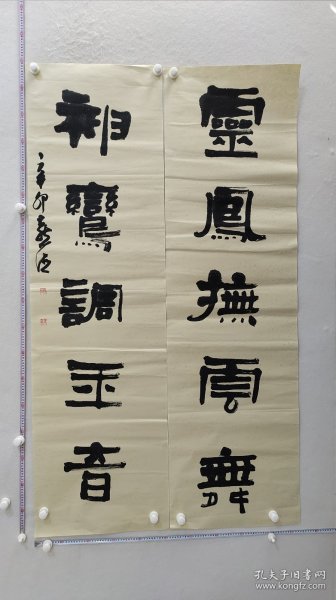 靈鳳撫雲舞
神鸞調玉音
辛卯
孔夫子旧书网